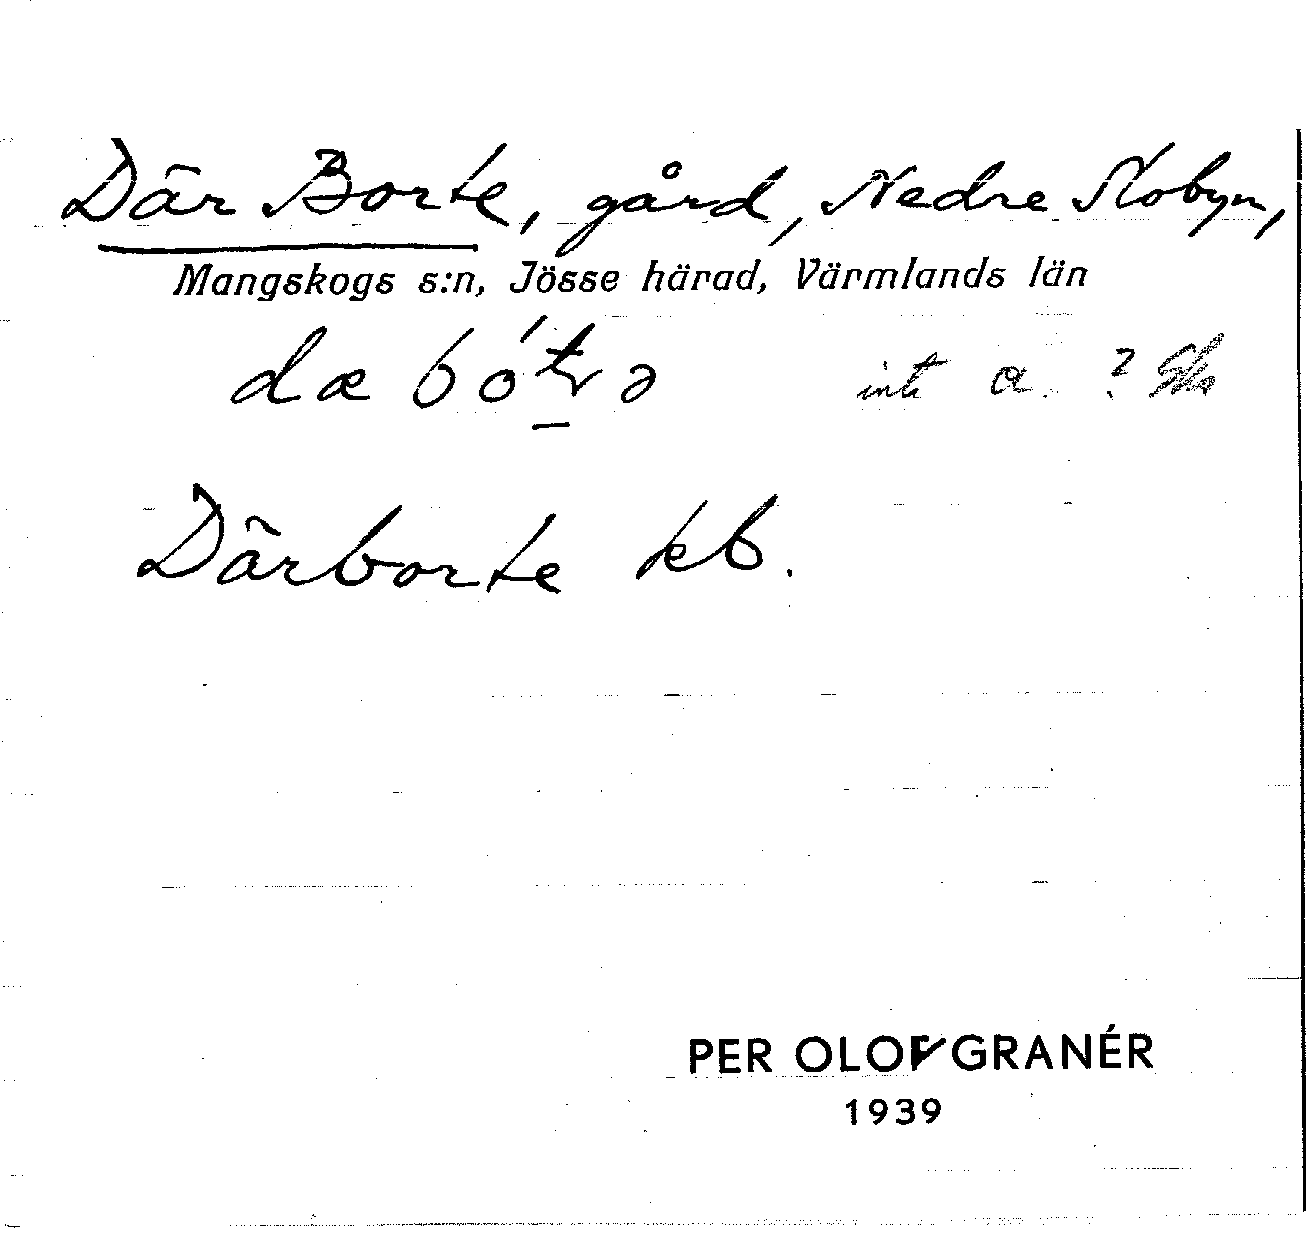 Där Borte, gård, Nedre Slobyn,
Mangskogs s:n, Jösse härad, Värmlands län
dæ bó̀tə inte a. ?
Därborte kb.
PER OLOF GRANÉR
1939